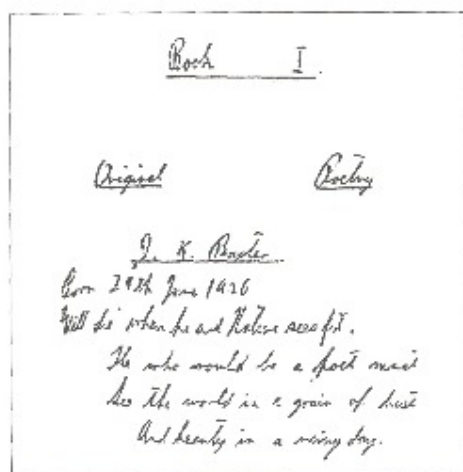 Book I.
Original Poetry
J. K. Baxter
Born 29th June 1926
Will die when he and Nature sees fit.
He who would be a poet must
See the world in a grain of dust
And beauty in a dog.